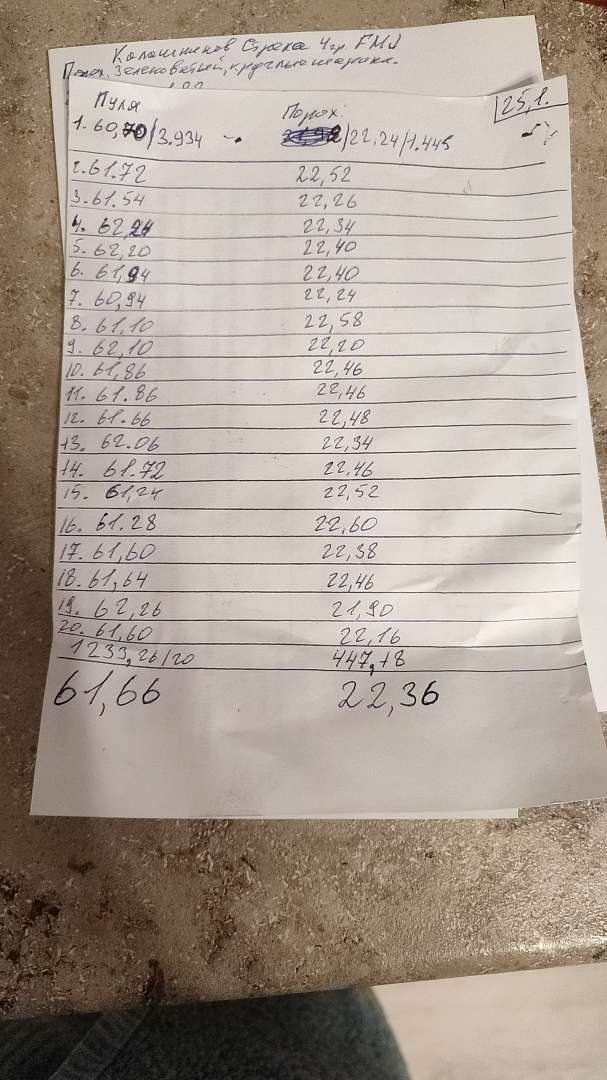 Калашников Страна 4гр. FMJ
Порох. Зеленоватый, круглые шарики.
Пуля Порох. 25,1.
1. 60,70/3.934 /22,24/1.445
2. 61.72 22,52
3. 61.54 22,26
4. 62,24 22,34
5. 62,20 22,40
6. 61,94 22,40
7. 60,94 22,24
8. 61,10 22,58
9. 62,10 22,20
10. 61,86 22,46
11. 61.86 22,46
12. 61.66 22,48
13. 62.06 22,34
14. 61.72 22.46
15. 61,24 22,52
16. 61.28 22,60
17. 61,60 22,38
18. 61,64 22,46
19. 62,26 21,90
20. 61,60 22,16
1233,26/20 447,18
61,66 22,36